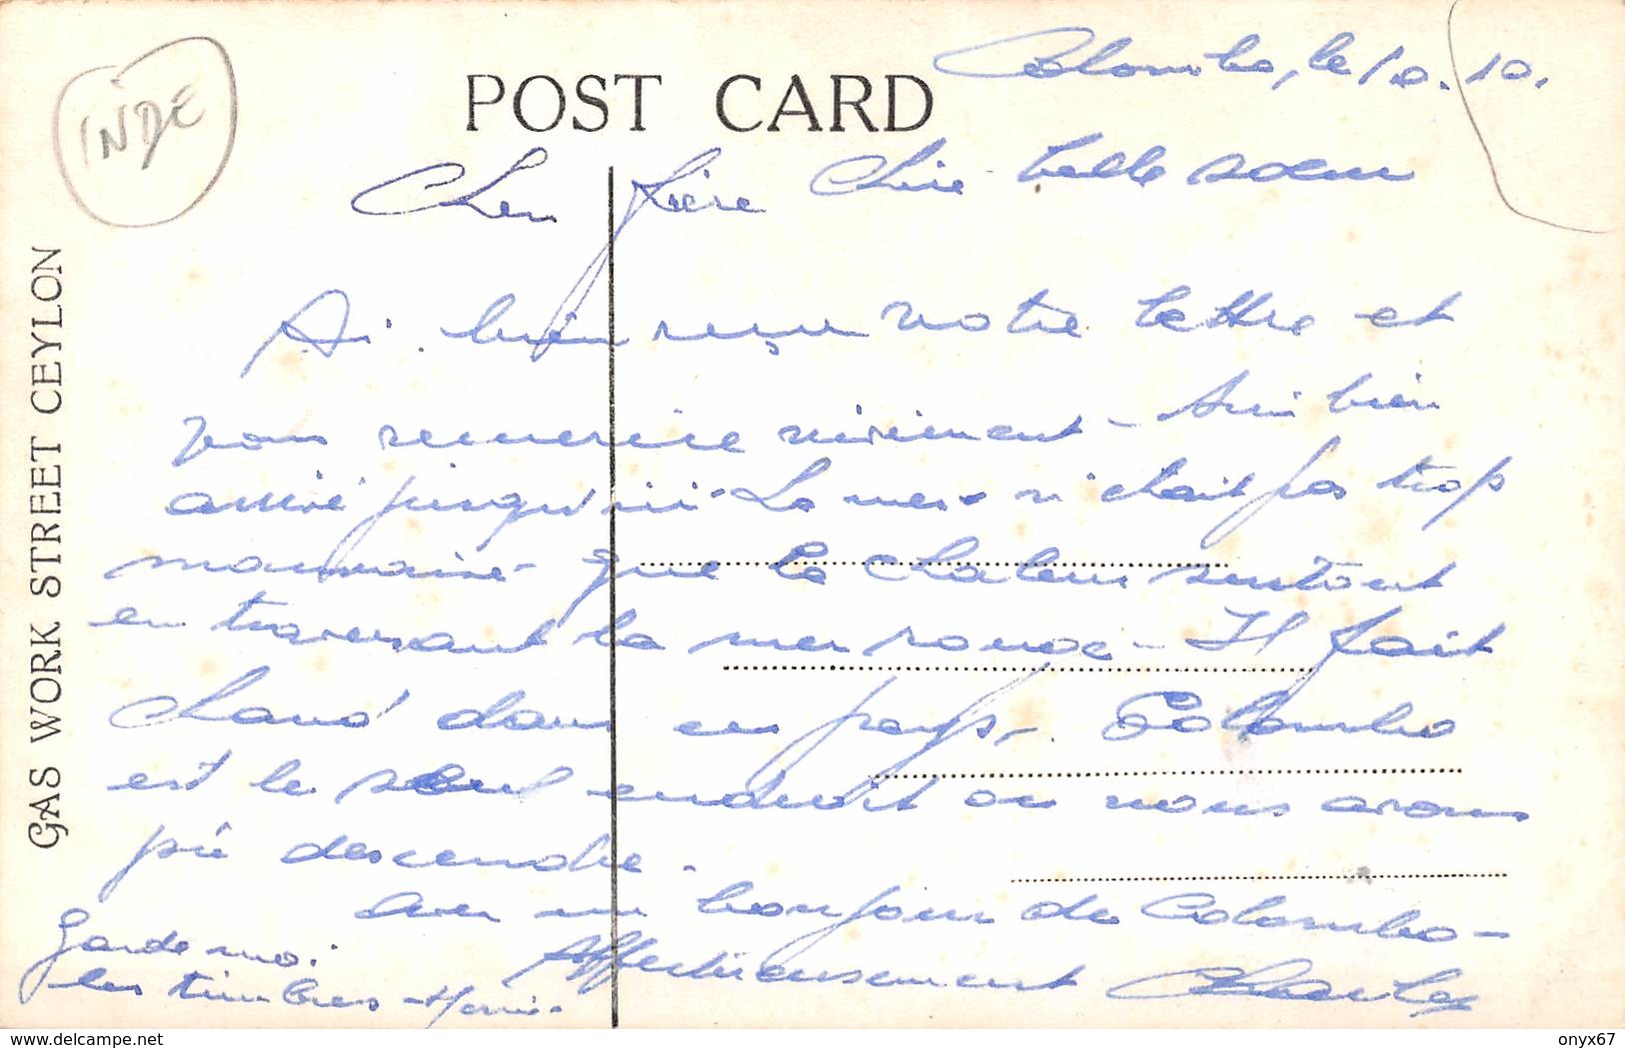 INDE
POST CARD
GAS WORK STREET CEYLON
Colombo, le 10.10.
Cher frère Chère belle soeur
Ai bien reçu votre lettre et
vous remercie vivement - Suis bien
arrivé jusqu'ici - La mer n'était pas trop
mauvaise - que la chaleur surtout
en traversant la mer rouge - Il fait
chaud dans ces pays - Colombo
est le seul endroit où nous avons
pû descendre.
Avec un bonjour de Colombo -
Affectueusement Charles
Garde moi
les timbres - Merci -
delcampe.net
onyx67